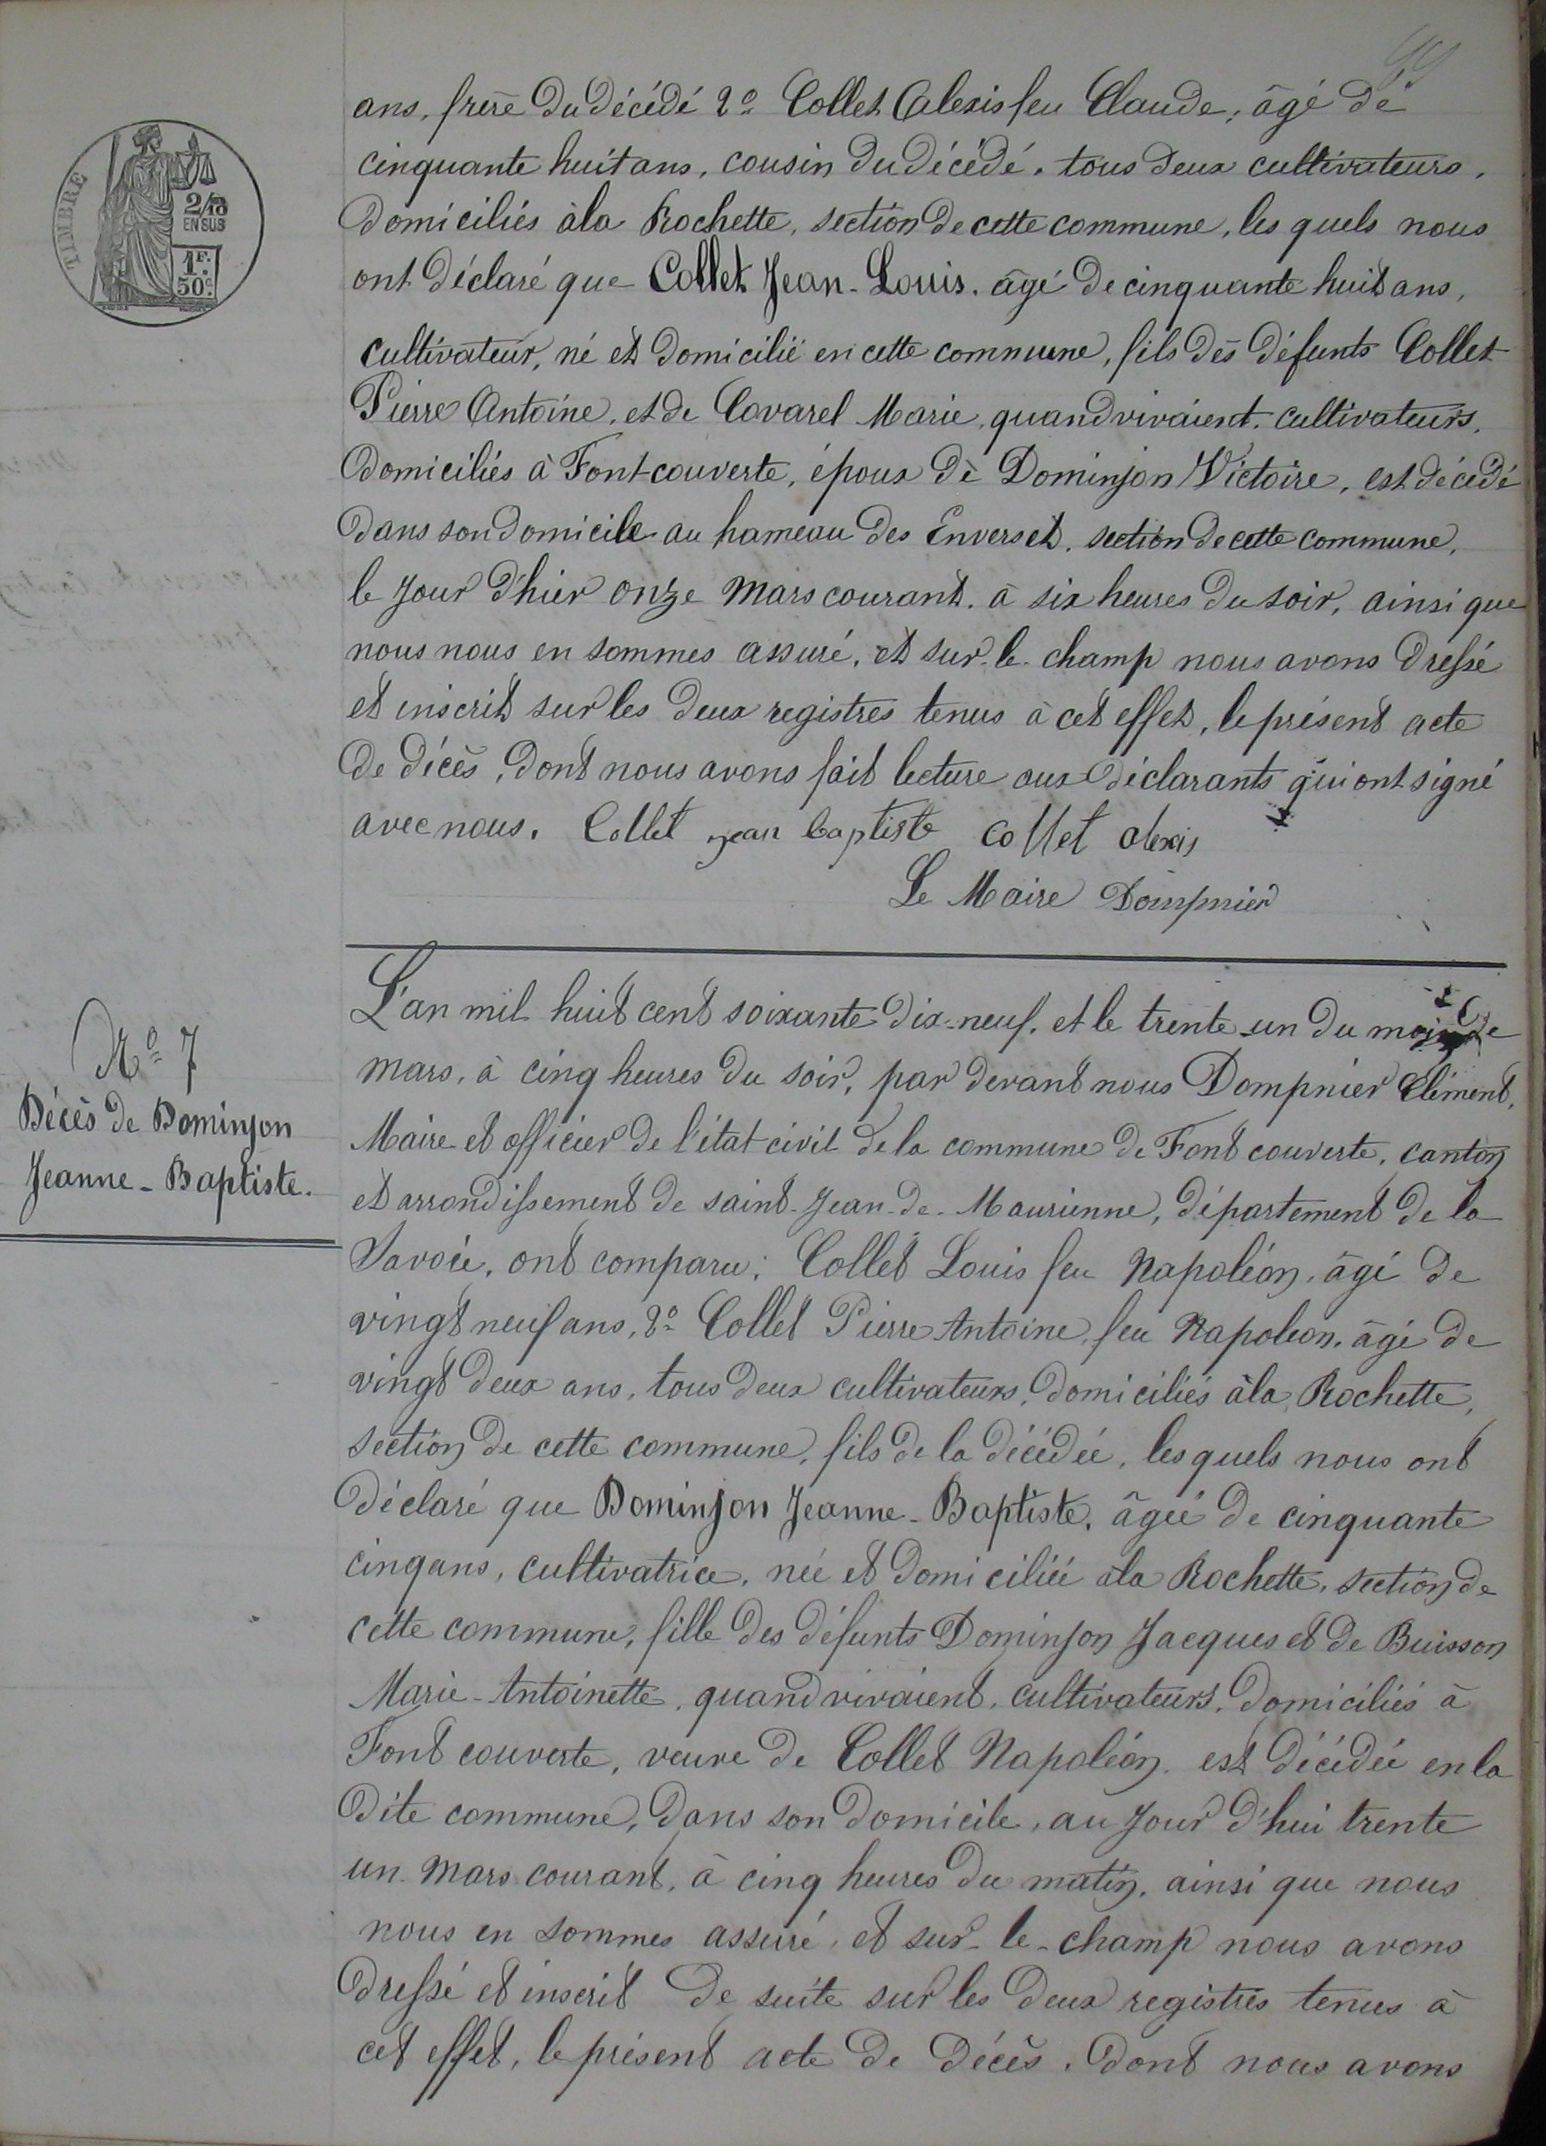 TIMBRE
2/10
EN SUS
1F.
50c.
ans, frère du décédé 2º Collet Alexis feu Claude, âgé de
cinquante huit ans, cousin du décédé, tous deux cultivateurs,
domiciliés à la Rochette, section de cette commune, les quels nous
ont déclaré que Collet Jean-Louis, âgé de cinquante huit ans,
cultivateur, né et domicilié en cette commune, fils des défunts Collet
Pierre Antoine, et de Covarel Marie, quand vivaient, cultivateurs,
domiciliés à Fontcouverte, époux de Dominjon Victoire, est décédé
dans son domicile au hameau des Enverset, section de cette commune,
le jour d'hier onze mars courant, à six heures du soir, ainsi que
nous nous en sommes assuré, et sur-le-champ nous avons dressé
et inscrit sur les deux registres tenus à cet effet, le présent acte
de décès, dont nous avons fait lecture aux déclarants qui ont signé
avec nous. Collet jean baptiste collet alexis
Le Maire Dompnier
Nº 7
Décès de Dominjon
Jeanne-Baptiste.
L'an mil huit cent soixante dix-neuf, et le trente-un du mois de
mars, à cinq heures du soir, par devant nous Dompnier Clément,
Maire et officier de l'état civil de la commune de Font couverte, canton
et arrondissement de saint-Jean-de-Maurienne, département de la
Savoie, ont comparu: Collet Louis feu Napoléon, âgé de
vingt neuf ans, 2º Collet Pierre Antoine, feu Napoleon, âgé de
vingt deux ans, tous deux cultivateurs, domiciliés à la Rochette,
section de cette commune, fils de la décédée, lesquels nous ont
déclaré que Dominjon Jeanne-Baptiste, âgée de cinquante
cinq ans, cultivatrice, née et domiciliée à la Rochette, section de
cette commune, fille des défunts Dominjon Jacques et de Buisson
Marie-Antoinette, quand vivaient, cultivateurs, domiciliés à
Font couverte, veuve de Collet Napoléon, est décédée en la
dite commune, dans son domicile, au jour d'hui trente
un mars courant, à cinq heures du matin, ainsi que nous
nous en sommes assuré, et sur-le-champ nous avons
dressé et inscrit de suite sur les deux registres tenus à
cet effet, le présent acte de décès, dont nous avons